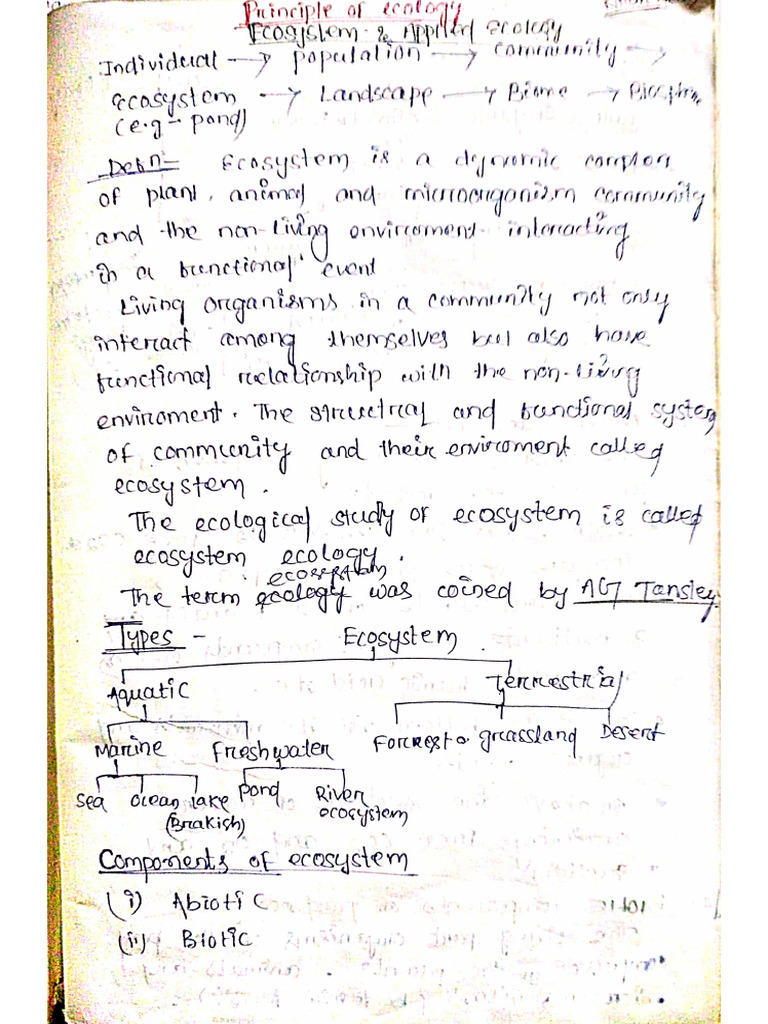 Principle of ecology
Ecosystem & Applied Ecology
Individual → population → community →
Ecosystem → Landscape → Biome → Biosphere
(e.g - pond)
Defn:- Ecosystem is a dynamic complex
of plant, animal and microorganism community
and the non-living enviroment interacting
in a functional event
Living organisms in a community not only
interact among themselves but also have
functional relationship with the non-living
enviroment. The structral and functional system
of community and their enviroment called
ecosystem.
The ecological study of ecosystem is called
ecosystem ecology.
ecosystem
The term ecology was coined by AG Tansley
Types - Ecosystem
Aquatic Terrestrial
Marine Freshwater Forrest grassland Desert
Sea ocean lake pond River
(Brakish) ecosystem
Components of ecosystem
(i) Abiotic
(ii) Biotic